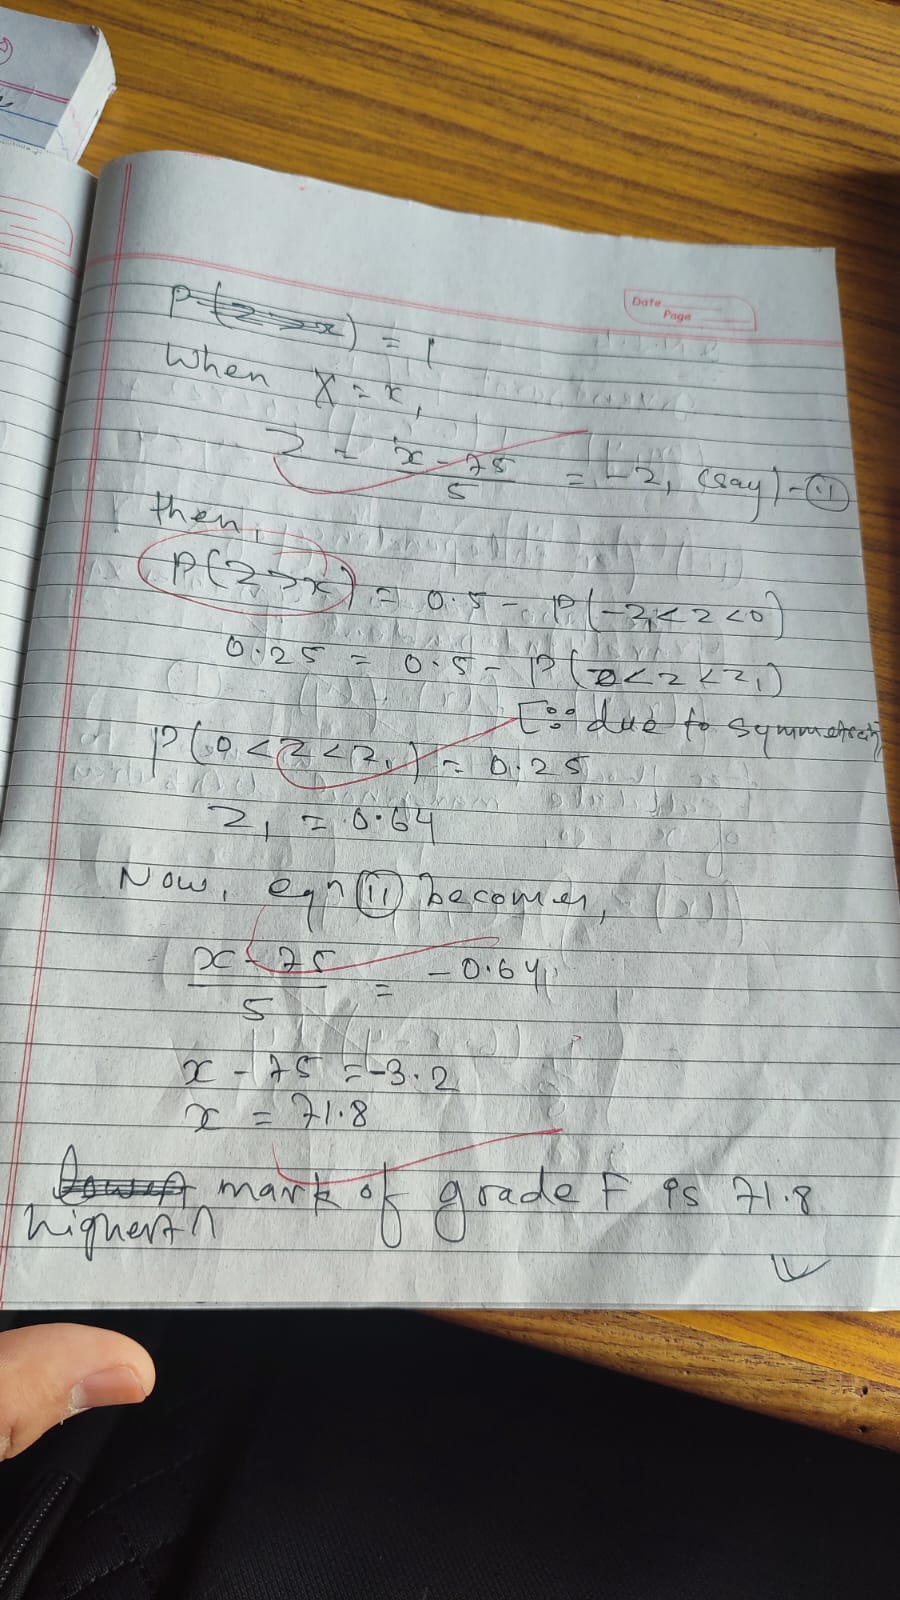 Date
Page
P(z > x) = 1
When X = x,
z = x - 75 / 5 = -z, (say) - (ii)
then,
P(z > x) = 0.5 - P(-z₁ < z < 0)
0.25 = 0.5 - P(0 < z < z₁)
[∵ due to symmetrch
P(0 < z < z₁) = 0.25
z₁ = 0.64
Now, eqn (ii) becomes,
x - 75 / 5 = -0.64
x - 75 = -3.2
x = 71.8
lowest mark of grade F is 71.8
highest ^